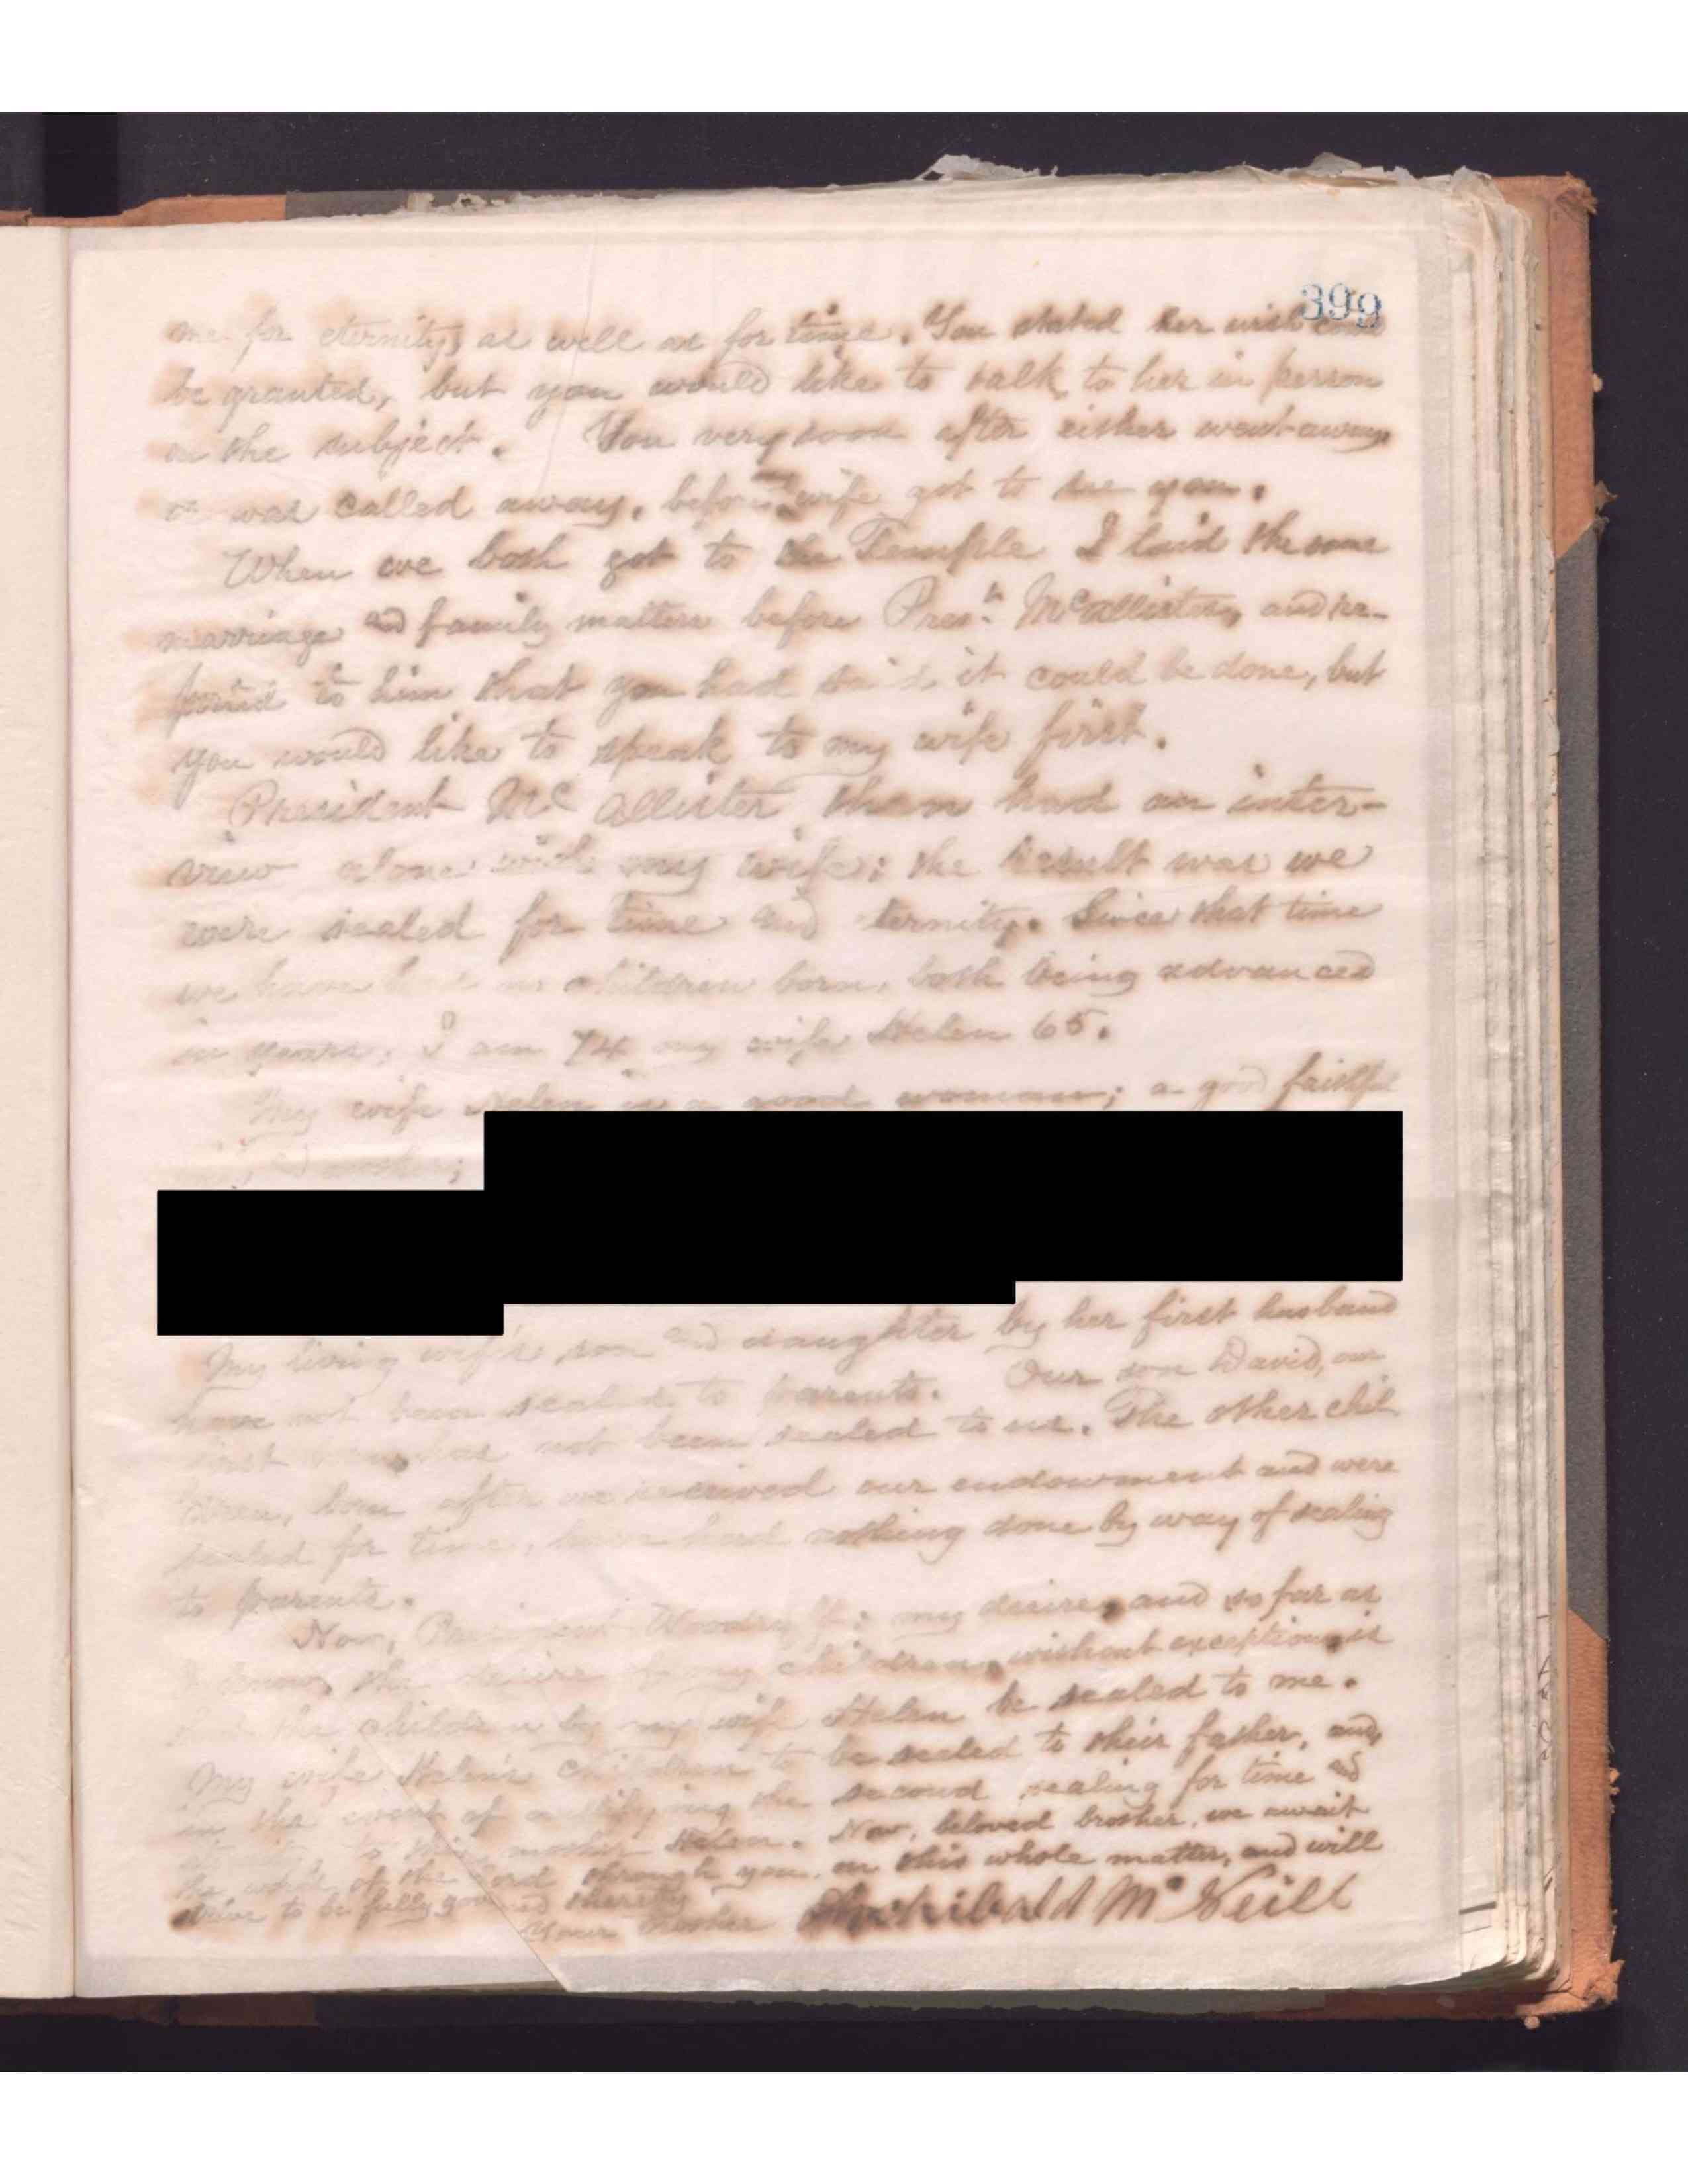 399
me for eternity, as well as for time. You stated her wish could
be granted, but you would like to talk to her in person
on the subject. You very soon after either went away
or was called away, before wife got to see you.
When we both got to the Temple I laid the same
marriage and family matters before Pres.t McAllister, and re-
ported to him that you had said it could be done, but
you would like to speak to my wife first.
President Mc Allister then had an inter-
view alone with my wife: the result was we
were sealed for time and eternity. Since that time
we have had no children born, both being advanced
in years, I am 74 my wife Helen 65.
My wife Helen is a good woman; a good faithful
wife and mother;
My living wife's son and daughter by her first husband
have not been sealed to parents. Our son David, our
first born has not been sealed to us. The other chil
dren, born after we received our endowment and were
sealed for time, have had nothing done by way of sealing
to parents.
Now, President Woodruff: my desire, and so far as
I know, the desire of my children, without exception, is
that the children by my wife Helen be sealed to me.
My wife Helen's children to be sealed to their father, and,
in the event of ratifying the second sealing for time and
to their mother Helen. Now, beloved brother, we await
the word of the Lord through you, on this whole matter, and will
strive to be fully governed thereby
Your brother Archibald McNeill